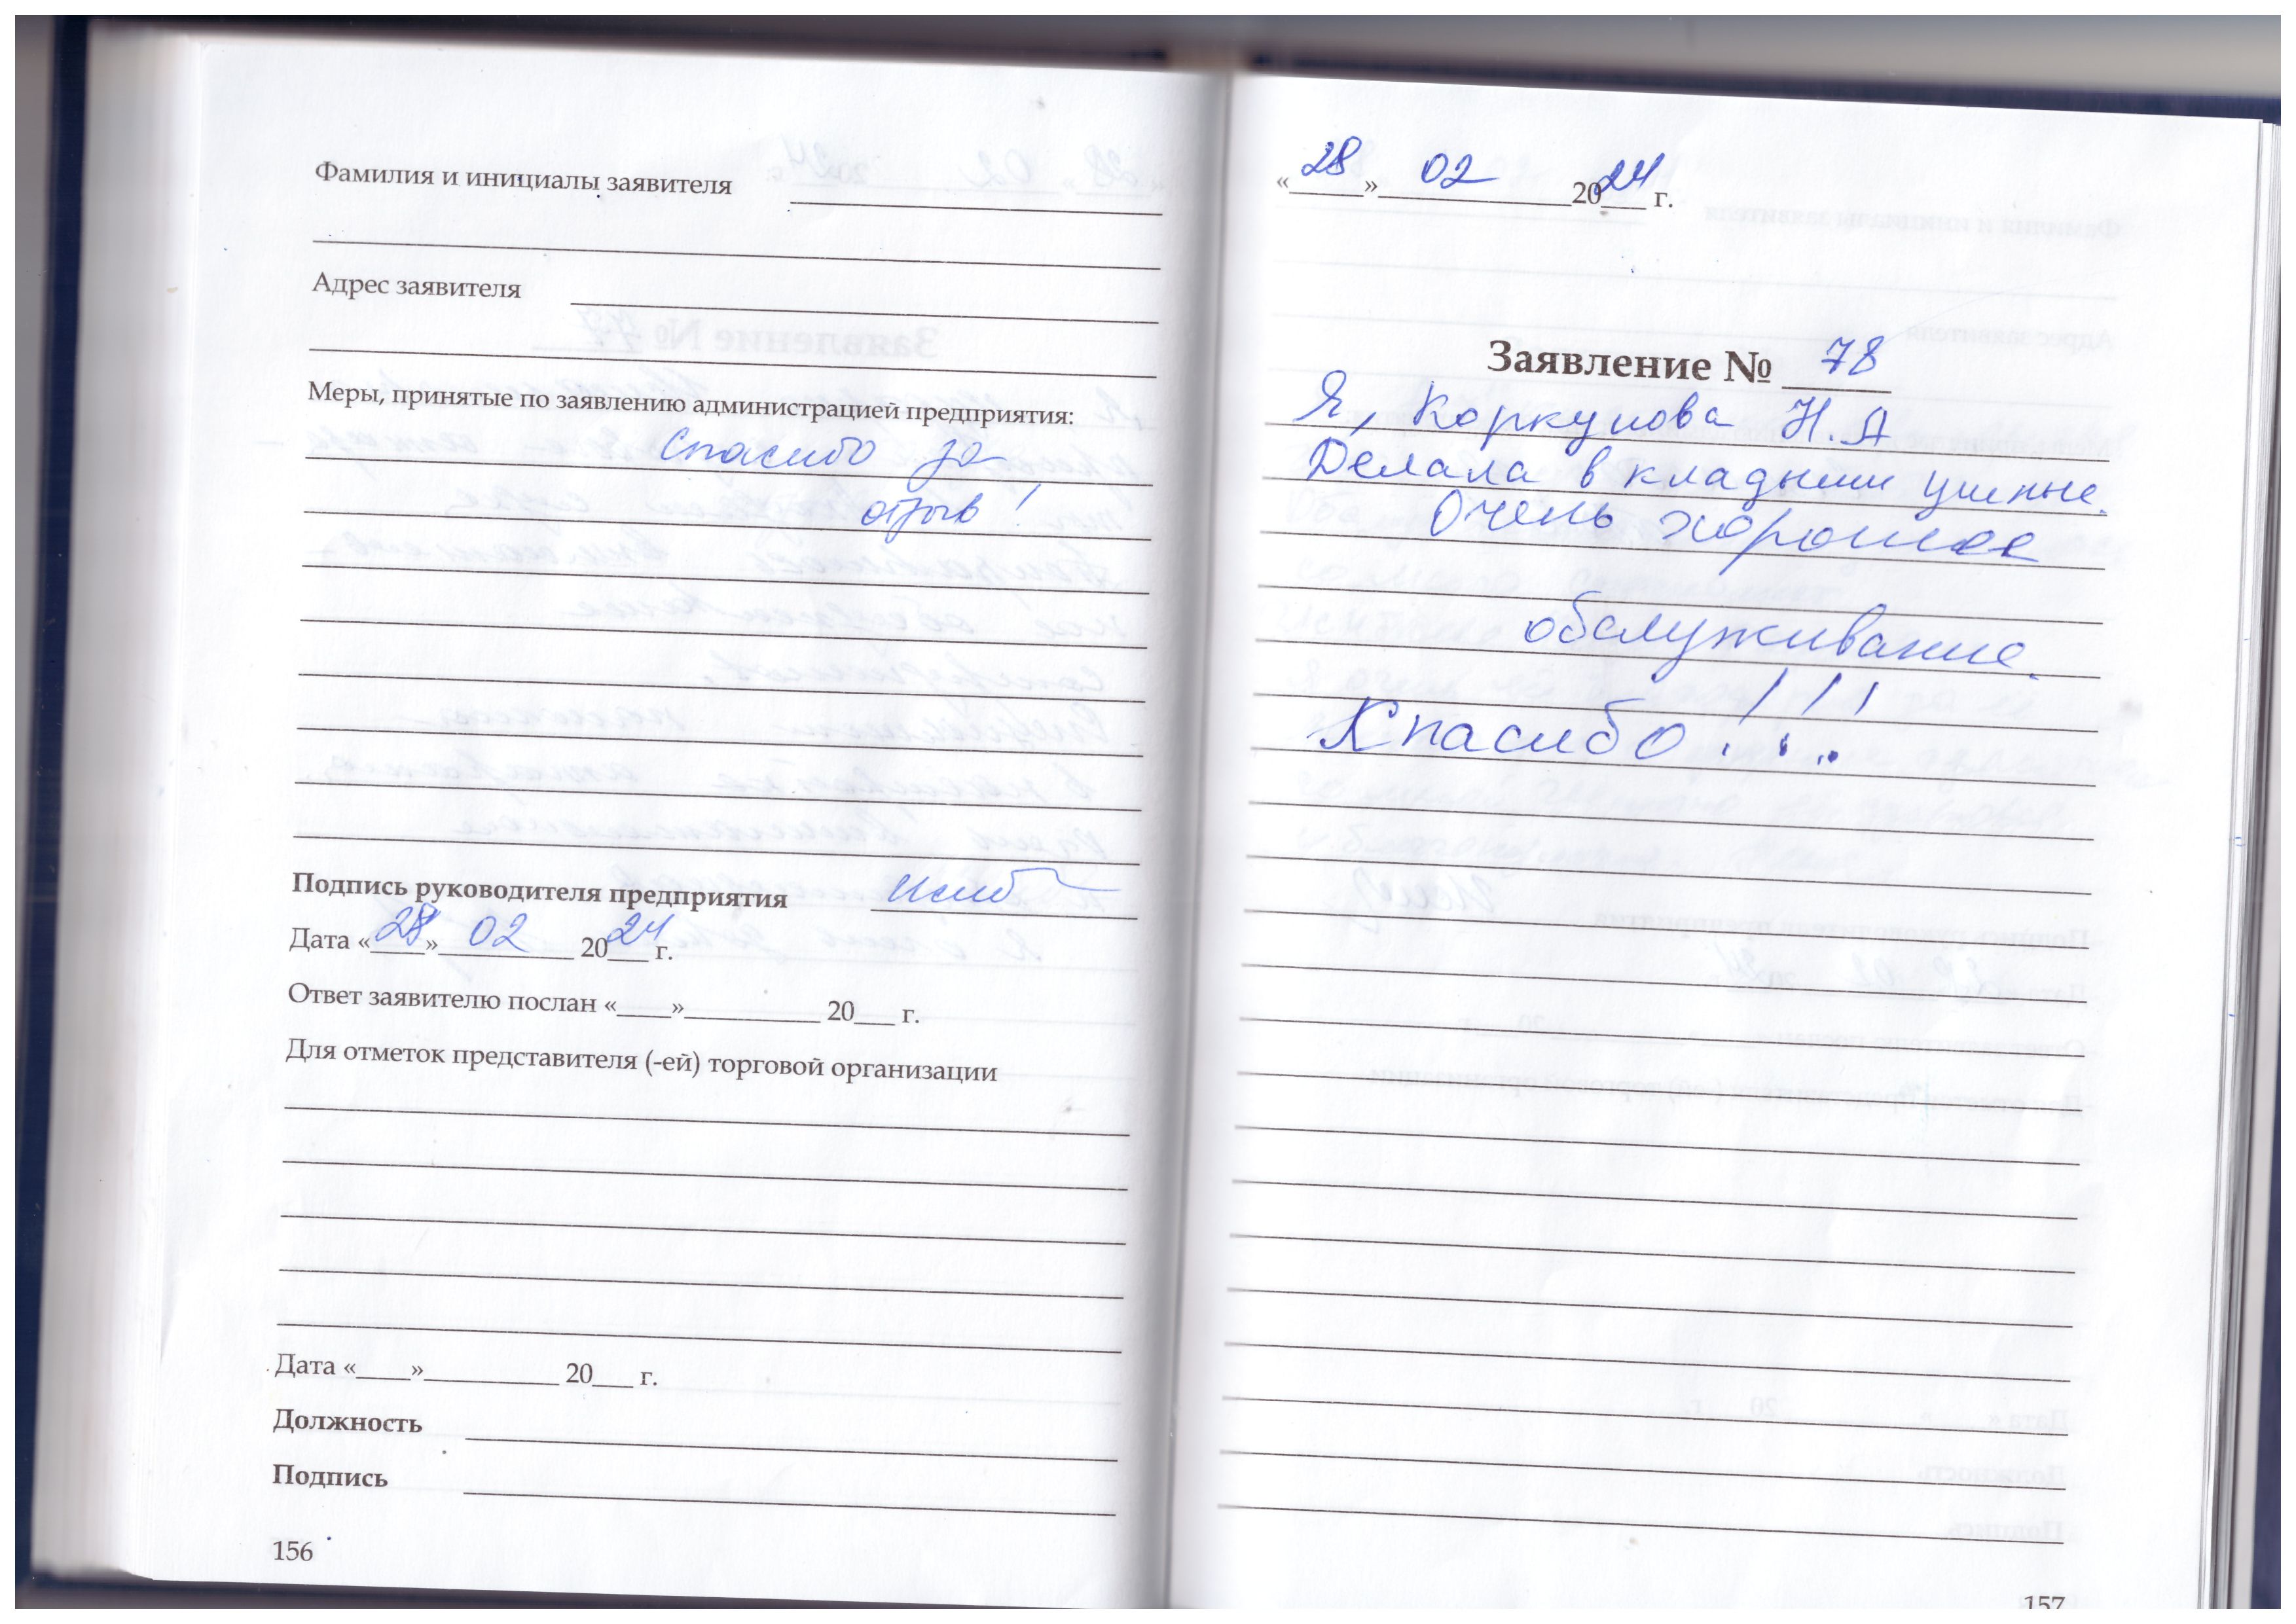 Фамилия и инициалы заявителя
Адрес заявителя
Меры, принятые по заявлению администрацией предприятия:
Спасибо за
отзыв!
Подпись руководителя предприятия
Дата «28» 02 2024 г.
Ответ заявителю послан «____»__________ 20___ г.
Для отметок представителя (-ей) торговой организации
Дата «____»__________ 20___ г.
Должность
Подпись
156
«28» 02 2024 г.
Заявление № 78
Я, Коркунова Н.А
Делала вкладыши ушные.
Очень хорошее
обслуживание.
Спасибо!!!
157